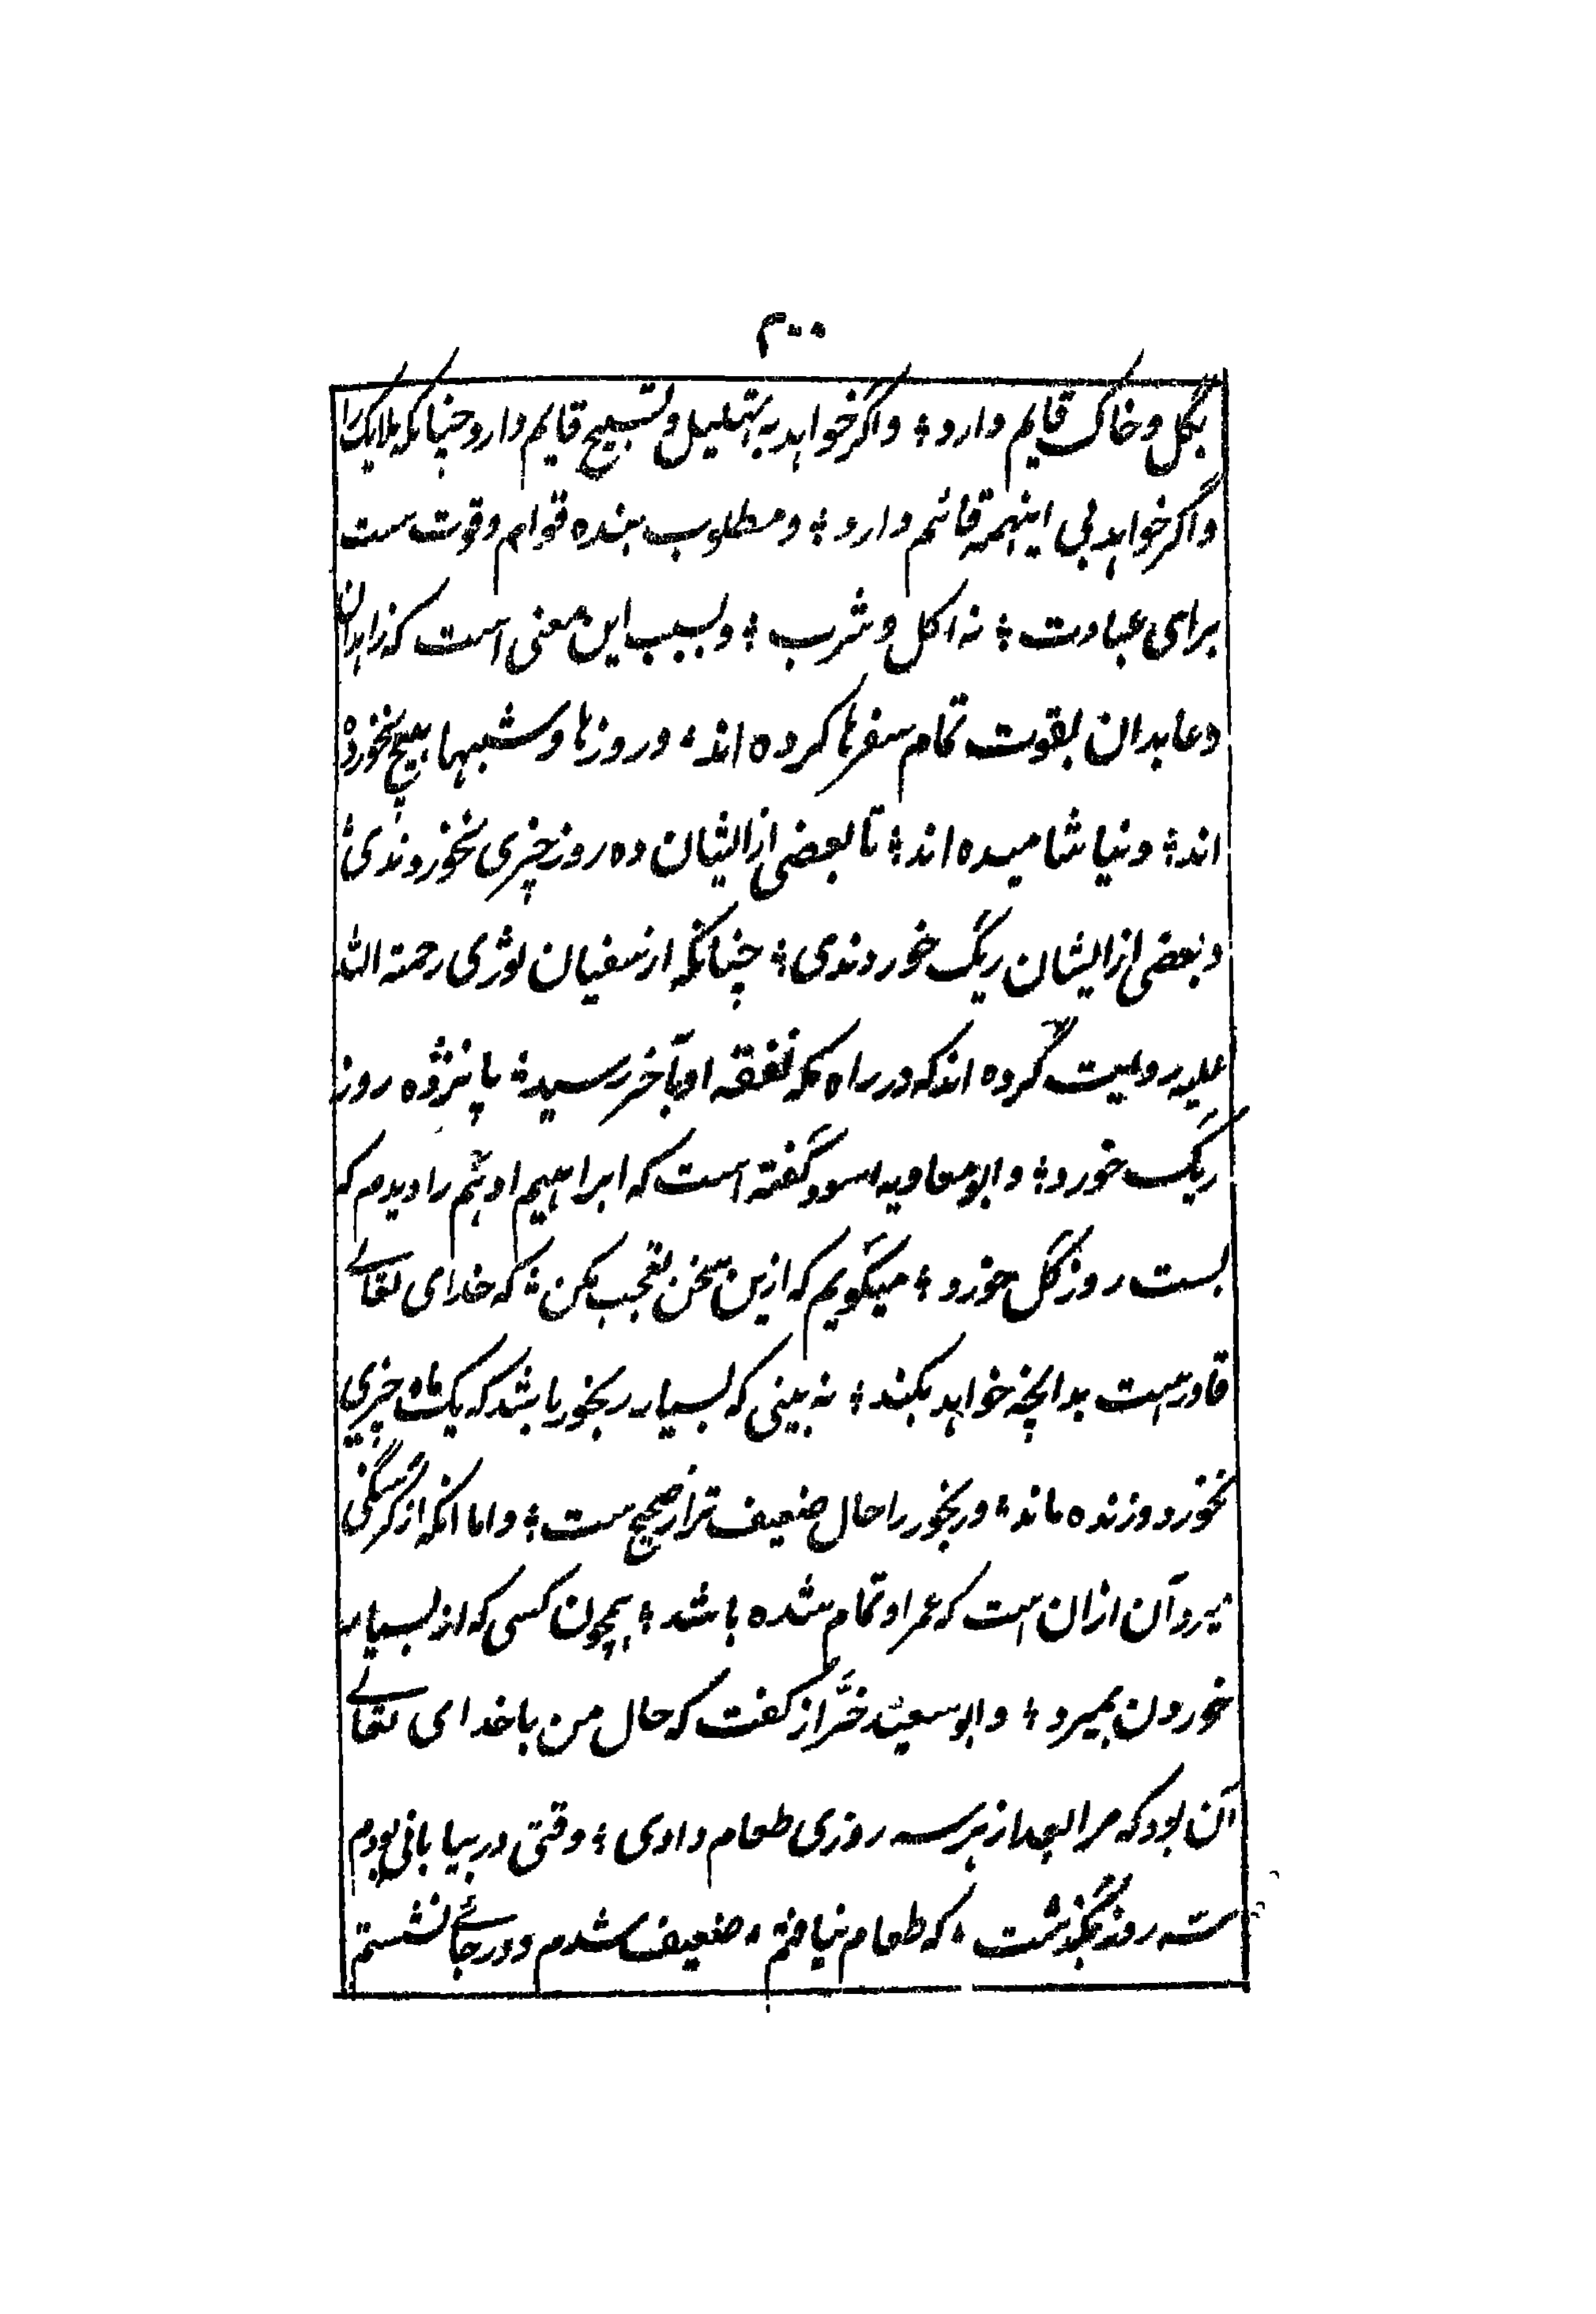 ۳۰۰
بگل و خاک قایم دارد؛ واگر خواهد به تهلیل و تسبیح قایم دارد چنانکه ملایک را
واگر خواهد بی اینهمه قائم دارد؛ ومطلوب بنده قوام و قوت ست
برای عبادت؛ نه اکل و شرب؛ و بسبب این معنی است که زاهدان
و عابدان بقوت تمام سفرها کرده اند؛ و روزها و شبها هیچ نخورده
اند؛ و نیاشامیده اند؛ تا بعضی از ایشان ده روز چیزی نخوردندی؛
و بعضی از ایشان ریگ خوردندی؛ چنانکه از سفیان ثوری رحمته الله
علیه روایت کرده اند که در راه مکه نفقه او بآخر رسید؛ پانزده روز
ریگ خورد؛ و ابو معاویه اسود گفته است که ابراهیم ادهم را دیدم که
بست روز گل خورد؛ میگویم که ازین سخن تعجب مکن؛ که خدای تعالے
قادرست بدانچه خواهد بکند؛ نه بینی که بسیار رنجور باشد که یک ماه چیزی
نخورد و زنده ماند؛ و رنجور را حال ضعیف تر از صحیح ست؛ و اما انکه از گرسنگی
میرد آن ازان است که عمر او تمام شده باشد؛ همچون کسی که از بسیار
خوردن بمیرد؛ و ابو سعید خرّاز گفت که حال من با خدای تعالے
آن بود که مرا بعد از هر سه روزی طعام دادی؛ وقتی در بیابانی بودم
سه روز بگذشت، که طعام نیافتم، ضعیف شدم و در جائے نشستم